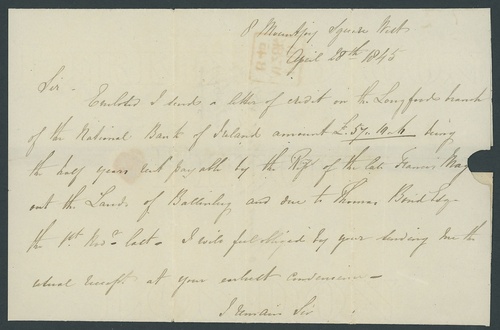 8 Mountjoy Square West
April 28th 1845
Sir -
Enclosed I send a letter of credit on the Longford branch
of the National Bank of Ireland amount £57. 10. 6 being
the half years rent payable by the Reps of the late Francis
out the Lands of and due to Thomas Bond Esqr
the 1st Novr last - I will feel obliged by your sending me the
usual receipt at your earliest convenience -
I remain Sir